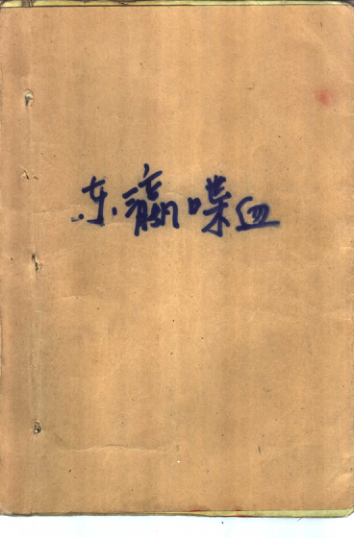 东瀛喋血